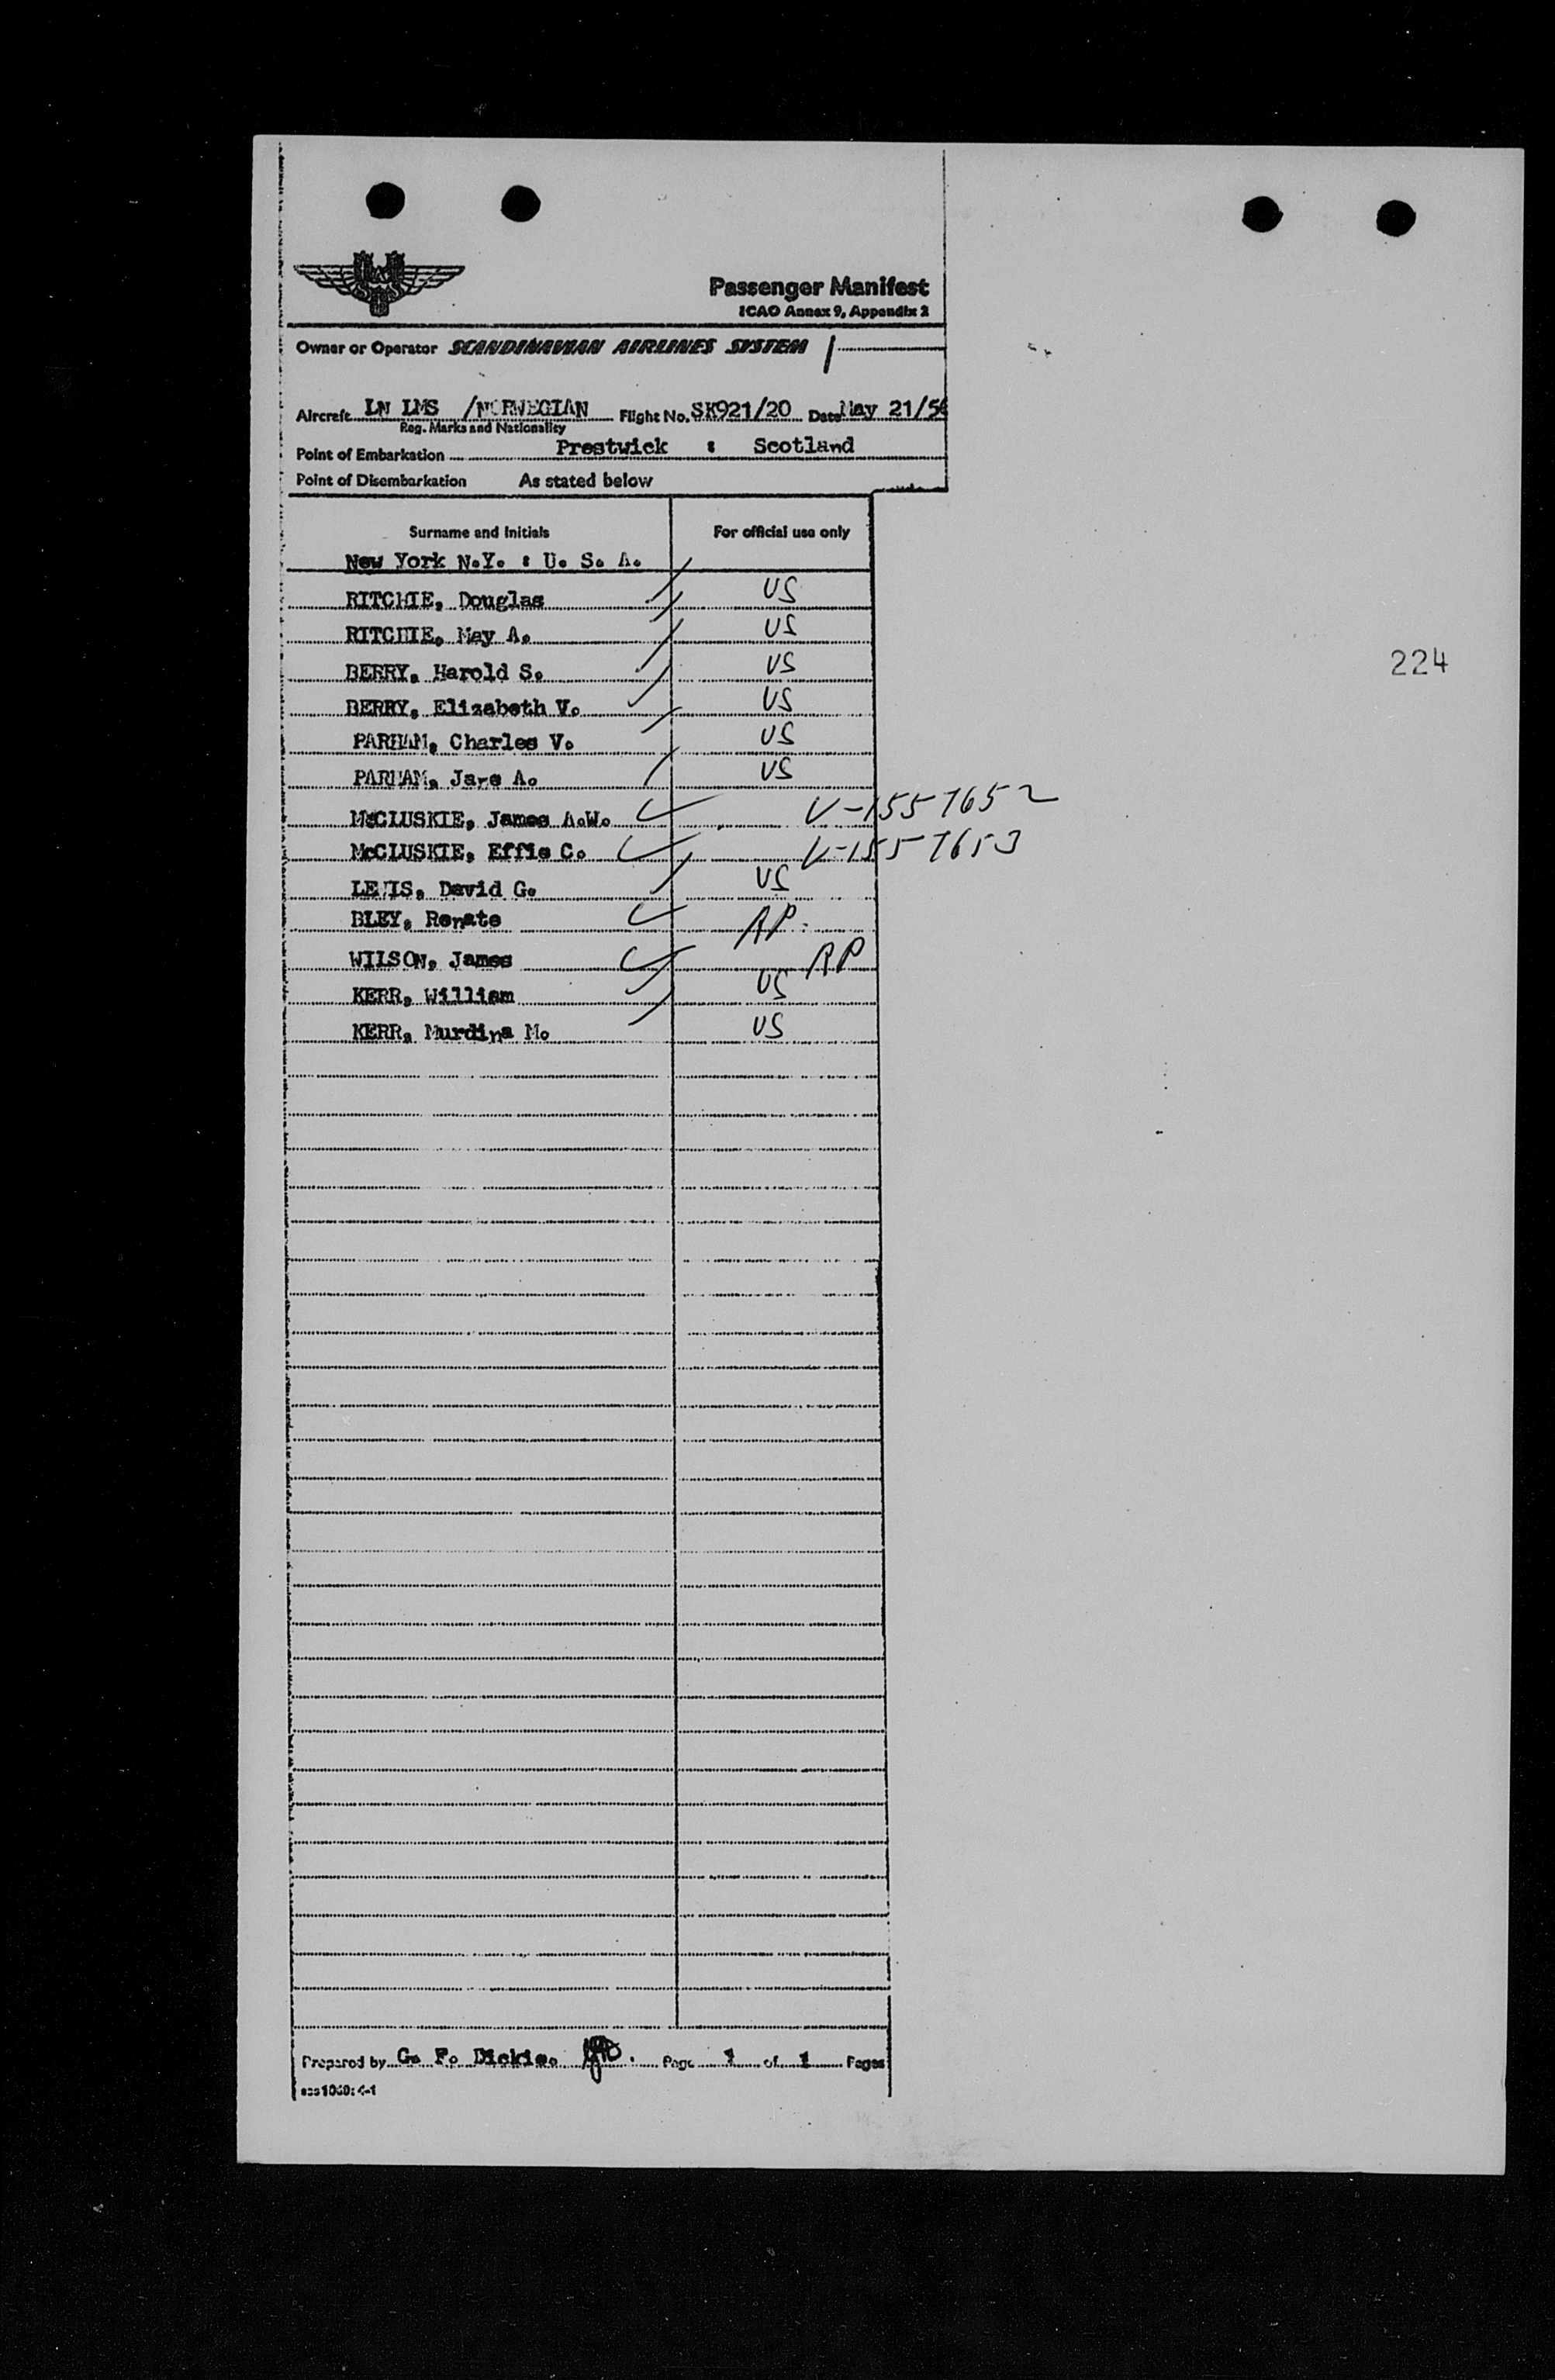 Passenger Manifest
ICAO Annex 9, Appendix 2
Owner or Operator SCANDINAVIAN AIRLINES SYSTEM
Aircraft LN LMS /NORWEGIAN Flight No. SK921/20 Date May 21/56
Reg. Marks and Nationality
Point of Embarkation Prestwick : Scotland
Point of Disembarkation As stated below
Surname and Initials For official use only
New York N.Y. : U. S. A.
RITCHIE, Douglas US
RITCHIE, May A. US
BERRY, Harold S. US
224
BERRY, Elizabeth V. US
PARHAM, Charles V. US
PARHAM, Jare A. US
McCLUSKIE, James A.W. V-1557652
McCLUSKIE, Effie C. V-1557653
LEWIS, David G. US
BLEY, Renate AP
WILSON, James AP
KERR, William US
KERR, Murdina M. US
Prepared by G. F. Dickie. Page 1 of 1 Pages